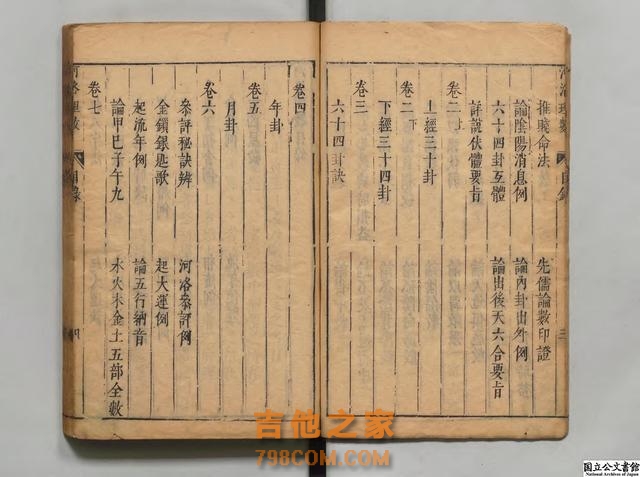 推驗命法 先儒論數印證
論陰陽消息例 論內卦出外例
六十四卦互體 論出後天六合要旨
詳說伏體要旨
卷二上
上經三十卦
卷二下
下經三十四卦
卷三
六十四卦訣
卷四
年卦
卷五
月卦
卷六
叅評秘訣辨 河洛叅評例
金鎖銀匙歌 起大運例
起流年例 論五行納音
論甲巳子午九 水火木金土五部全數
卷七
河洛理數 目錄 四
河洛理數 目錄 三
吉他之家
798COM.COM
国立公文書館
National Archives of Japan